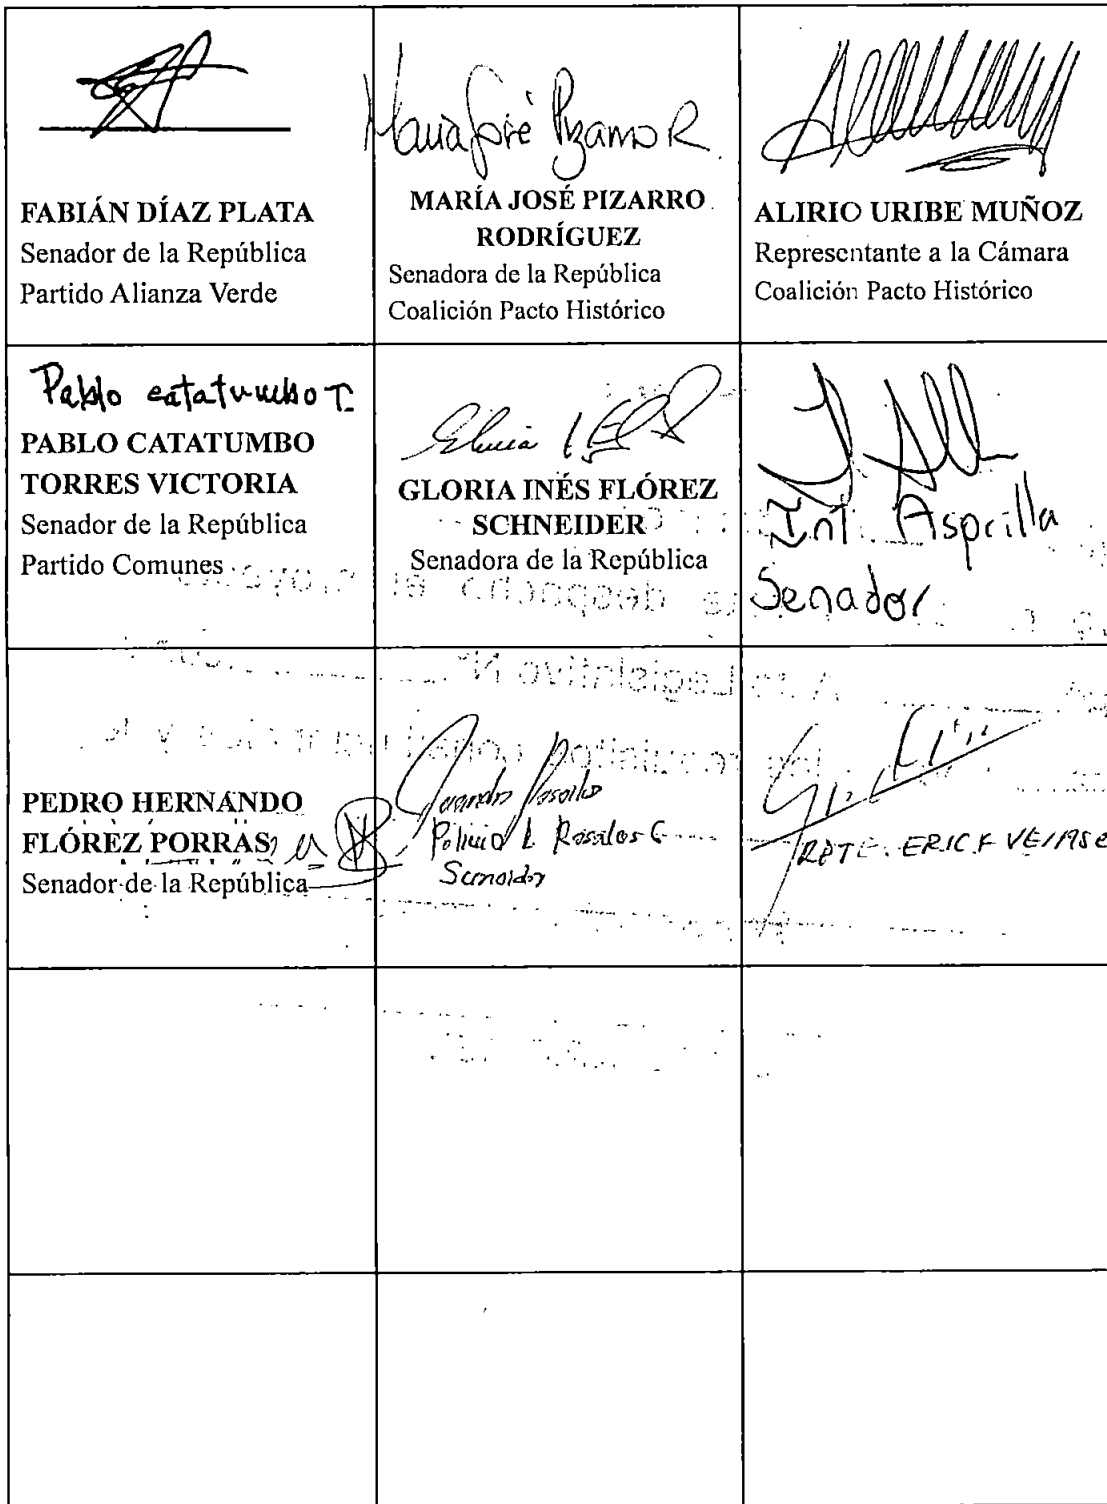 María José Pizarro R.
FABIÁN DÍAZ PLATA
Senador de la República
Partido Alianza Verde
MARÍA JOSÉ PIZARRO
RODRÍGUEZ
Senadora de la República
Coalición Pacto Histórico
ALIRIO URIBE MUÑOZ
Representante a la Cámara
Coalición Pacto Histórico
Pablo catatumbo T.
PABLO CATATUMBO
TORRES VICTORIA
Senador de la República
Partido Comunes
GLORIA INÉS FLÓREZ
SCHNEIDER
Senadora de la República
Asprilla
Senador
PEDRO HERNANDO
FLÓREZ PORRAS
Senador de la República
Rosales G
Senador